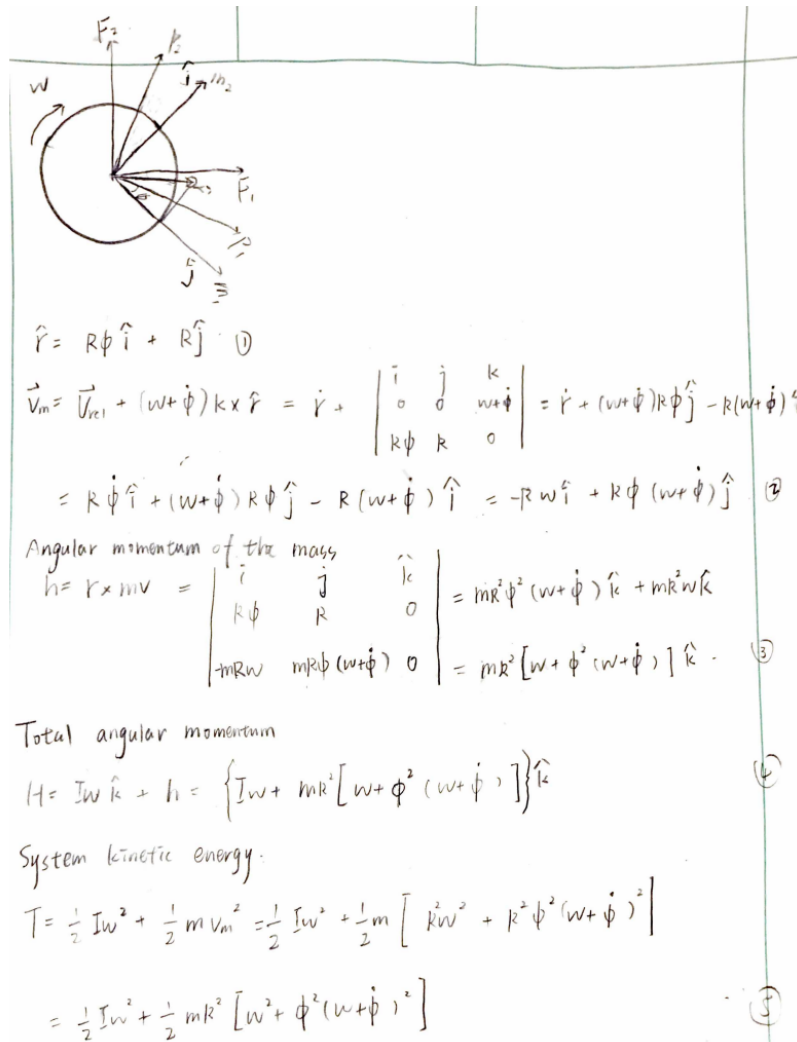 F̂₂
p̂₂
ĵ m̂₂
w
F̂₁
p̂₁
ĵ
m̂₁
r̂ = Rϕ î + R ĵ ①
V⃗m = V⃗rel + (w+ϕ̇) k × r̂ = ṙ + | i j k ; 0 0 w+ϕ̇ ; Rϕ R 0 | = ṙ + (w+ϕ̇)Rϕ ĵ - R(w+ϕ̇) î
= Rϕ̇ î + (w+ϕ̇) Rϕ ĵ - R (w+ϕ̇) î = -Rw î + Rϕ (w+ϕ̇) ĵ ②
Angular momentum of the mass
h = r × mv = | i j k̂ ; Rϕ R 0 ; -mRw mRϕ(w+ϕ̇) 0 | = mR²ϕ² (w+ϕ̇) k̂ + mR²w k̂
= mR² [w + ϕ² (w+ϕ̇)] k̂ . ③
Total angular momentum
H = Iw k̂ + h = {Iw + mR² [w + ϕ² (w+ϕ̇)]} k̂ ④
System kinetic energy.
T = ½ Iw² + ½ m Vm² = ½ Iw² + ½ m [R²w² + R²ϕ² (w+ϕ̇)²]
= ½ Iw² + ½ mR² [w² + ϕ² (w+ϕ̇)²] ⑤